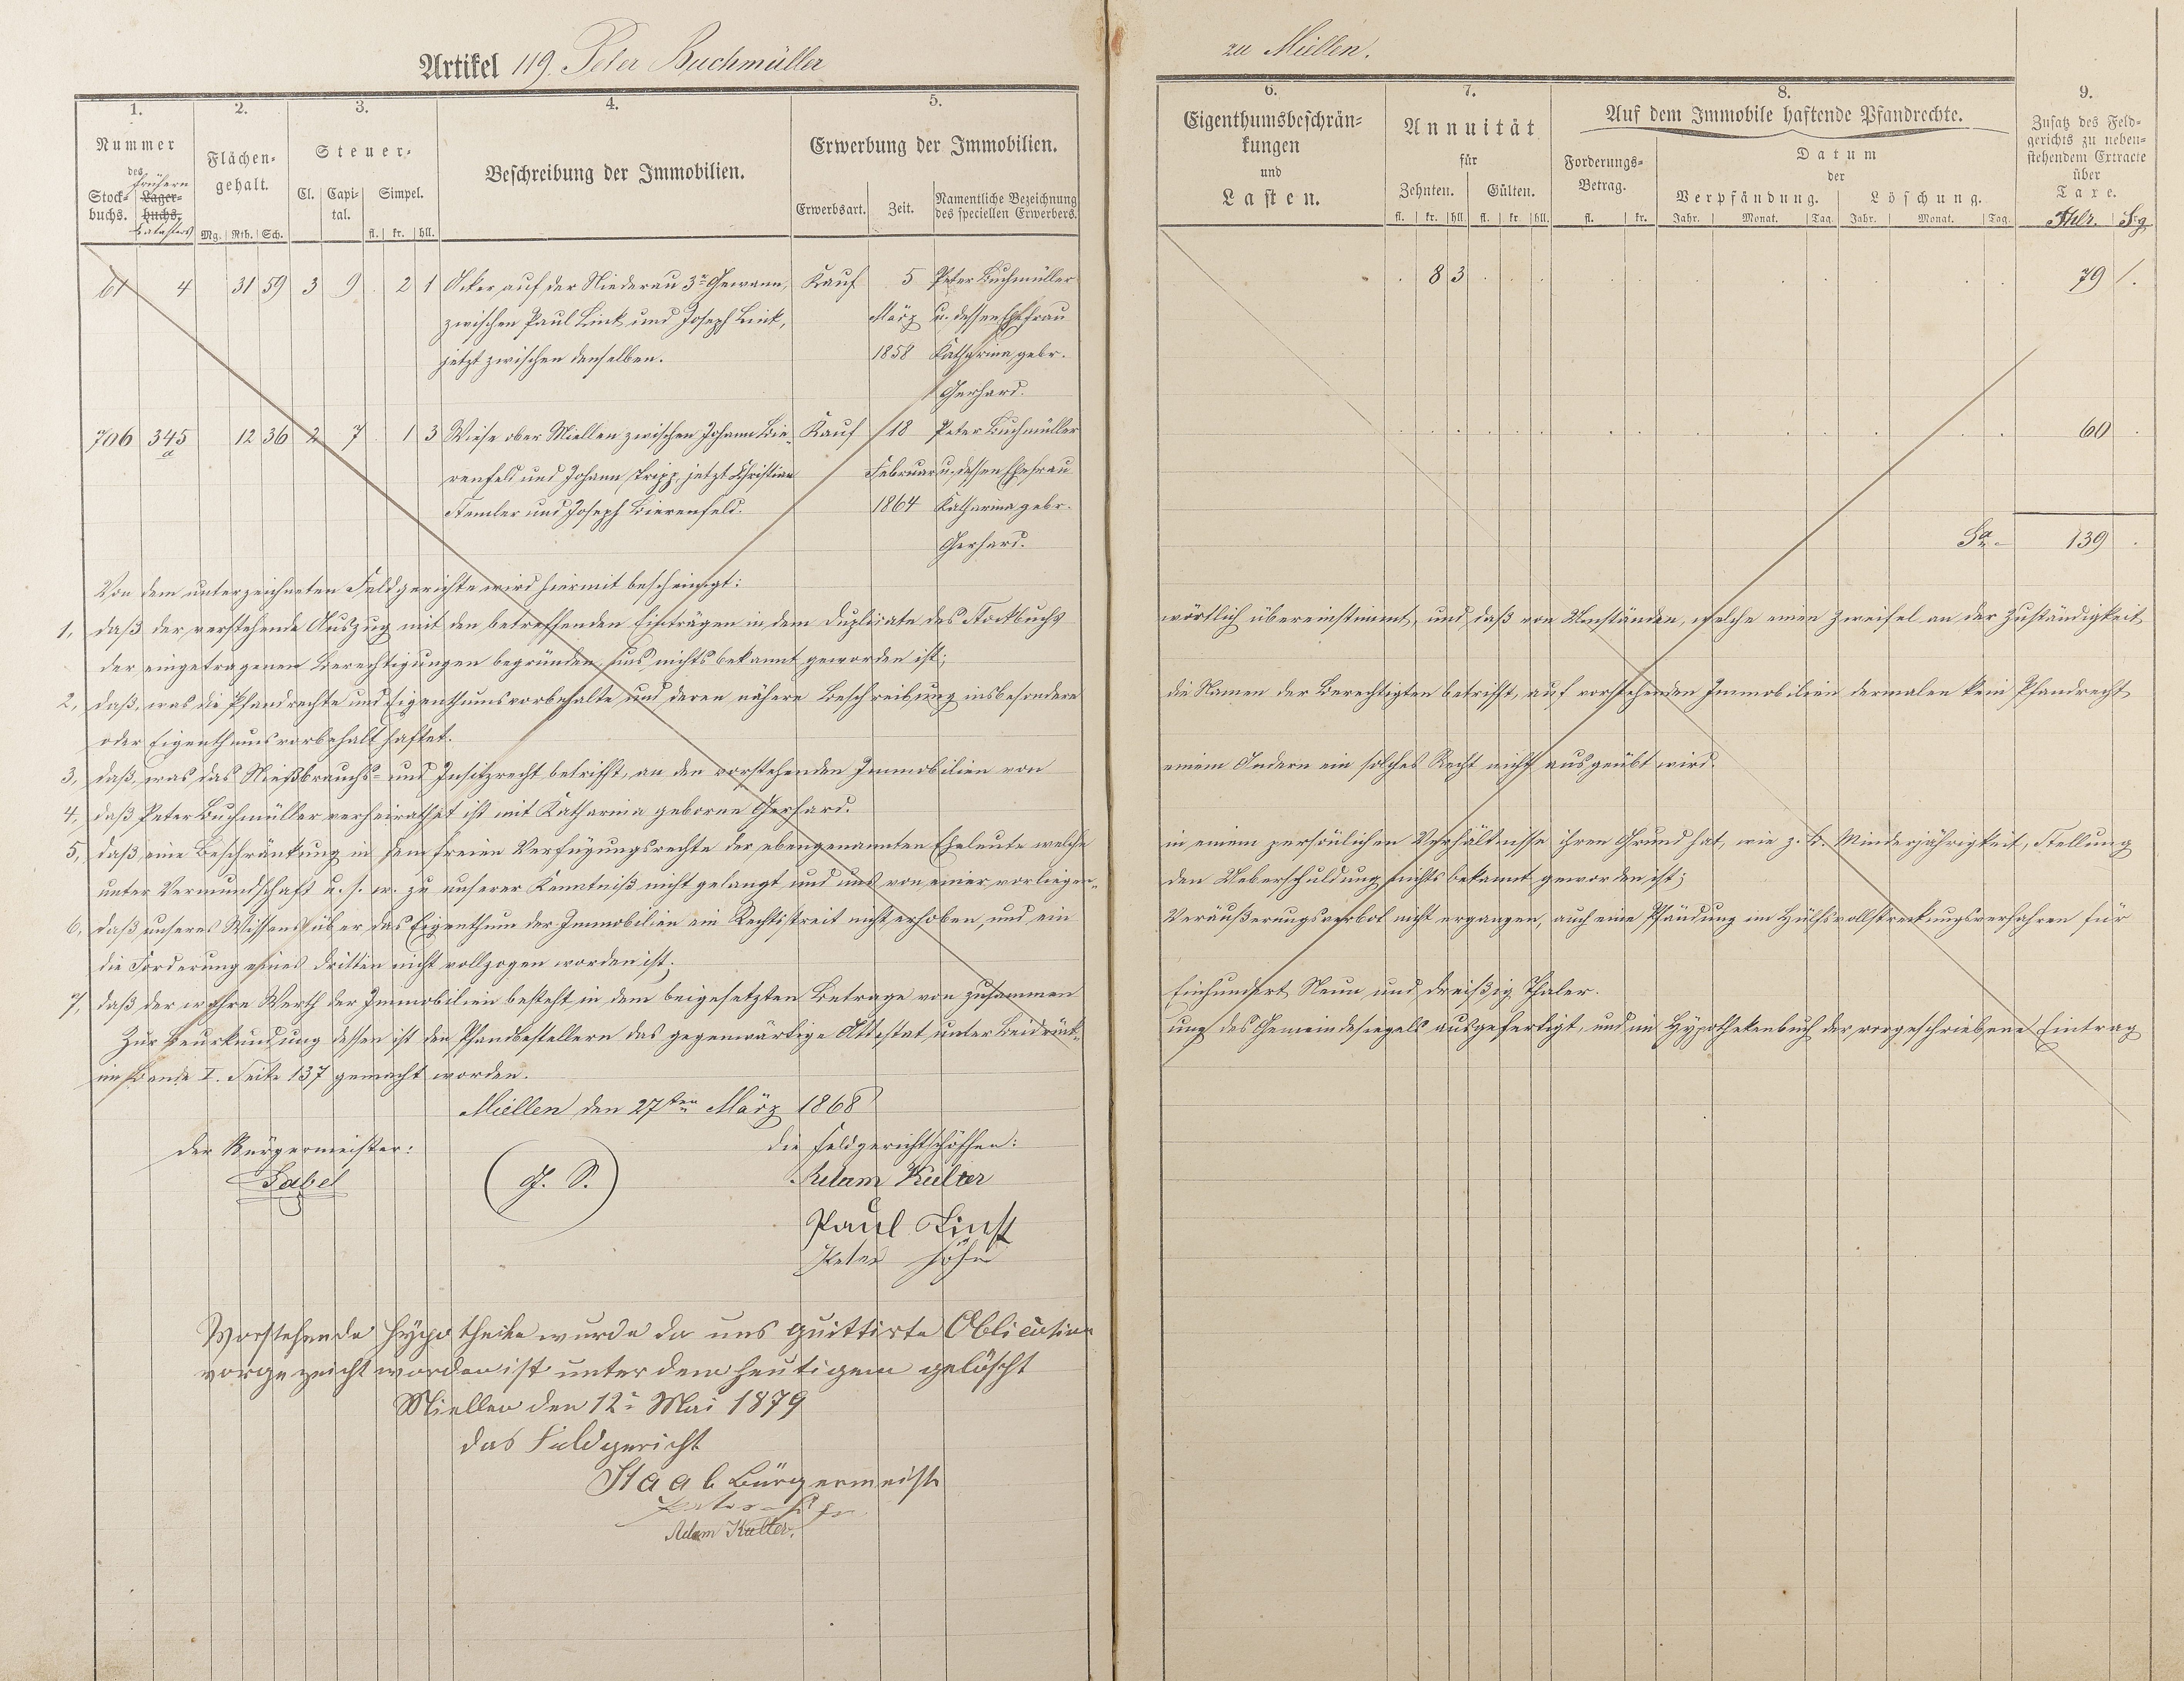 Artikel 119. Peter Buchmüller
zu Miellen.
1. 2. 3. 4. 5. 6. 7. 8. 9.
Nummer des
Stock-buchs. | frühern Lager-buchs. Catasters
Flächen-gehalt.
Mg. | Rth. | Sch.
Steuer-
Cl. | Capi-tal. | Simpel.
fl. | kr. | hll.
Beschreibung der Immobilien.
Erwerbung der Immobilien.
Erwerbsart. | Zeit. | Namentliche Bezeichnung des speciellen Erwerbers.
Eigenthumsbeschrän-kungen und Lasten.
Annuität für
Zehnten. | Gülten.
fl. | kr. | hll. | fl. | kr. | hll.
Auf dem Immobile haftende Pfandrechte.
Forderungs-Betrag.
fl. | kr.
Datum der
Verpfändung. | Löschung.
Jahr. | Monat. | Tag. | Jahr. | Monat. | Tag.
Zusatz des Feld-gerichts zu neben-stehendem Extracte über Taxe.
Thlr. | Sg
61 4 31 59 3 9 . 2 1 Acker auf der Niederau 3r Gewann, Kauf 5 Peter Buchmüller 8 3 79 /.
zwischen Paul Link und Joseph Link, März u. dessen Ehefrau
jetzt zwischen denselben. 1858 Katharina gebr.
Gerhard.
706 345 a 12 36 2 7 . 1 3 Wiese ober Miellen zwischen Johann Bie- Kauf 18 Peter Buchmüller 60 .
renfeld und Johann Tripp, jetzt Christian Februar u. dessen Ehefrau
Stemler und Joseph Bierenfeld. 1864 Katharina gebr.
Gerhard.
Sa. 139 .
Von dem unterzeichneten Feldgerichte wird hiermit bescheinigt:
1, daß der verstehende Auszug mit den betreffenden Einträgen in dem Duplicate des Stockbuchs wörtlich übereinstimmt, und daß von Umständen, welche einen Zweifel an der Zuständigkeit
der eingetragenen Berechtigungen begründen uns nichts bekannt geworden ist;
2, daß, was die Pfandrechte und Eigenthumsvorbehalte und deren nähere Beschreibung insbesondere die Namen der Berechtigten betrifft, auf vorstehenden Immobilien dermalen kein Pfandrecht
oder Eigenthumsvorbehalt haftet.
3, daß, was das Nießbrauchs- und Insitzrecht betrifft, an den vorstehenden Immobilien von einem Andern ein solches Recht nicht ausgeübt wird.
4, daß Peter Buchmüller verheirathet ist mit Katharina geborne Gerhard.
5, daß eine Beschränkung in dem freien Verfügungsrechte der ebengenannten Eheleute welche in einem persönlichen Verhältnisse ihren Grund hat, wie z. B. Minderjährigkeit, Stellung
unter Vormundschaft u. s. w. zu unserer Kenntniß nicht gelangt und uns von einer vorliegen- den Ueberschuldung nichts bekannt geworden ist;
6, daß unseres Wissens über das Eigenthum der Immobilien ein Rechtsstreit nicht erhoben, und ein Veräußerungsverbot nicht ergangen, auch eine Pfändung im Hülfsvollstreckungsverfahren für
die Forderung eines dritten nicht vollzogen worden ist;
7, daß der wahre Werth der Immobilien besteht in dem beigesetzten Betrage von zusammen Einhundert Neun und dreißig Thaler.
Zur Beurkundung dessen ist den Pfandbestellern das gegenwärtige Attestat unter Beidrück- ung des Gemeindesiegels ausgefertigt, und im Hypothekenbuch der vorgeschriebene Eintrag
im Bande I. Seite 137 gemacht worden.
Miellen den 27ten März 1868
der Bürgermeister: die Feldgerichtschöffen:
Sabel (G. S.) Adam Kulter
Paul Link
Peter Höhn
Vorstehende Hypotheke wurde da uns quittirte Oblication
vorgezeicht worden ist unter dem heutigem gelöscht
Miellen den 12t Mai 1879
das Feldgericht
Staab Bürgermeister
Peter Höhn
Adam Kulter.